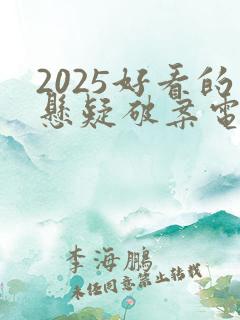 2025好看的
懸疑破案電
李海鵬
未经同意禁止转载